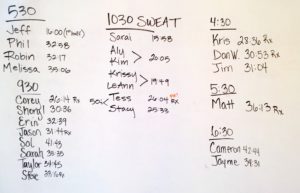 530
Jeff
Phil 32:58
Robin 32:17
Melissa 35:06
930
Corey 26:14 Rx
Sheryl 30:36
Erin 32:39
Jason 31:44 Rx
Sol 41:43
Sarah 35:35
Taylor 34:45
Steve
1030 SWEAT
Sarai 19:58
Aly
Kim 20:05
Krissy
LeAnn 19:49
Tess 26:04 Rx
Stacy 25:33
4:30
Kris 28:36 Rx
Don W. 30:53 Rx
Jim 31:04
5:30
Matt 36:13 Rx
10:30
Cameron 42:44
Jayme 34:31